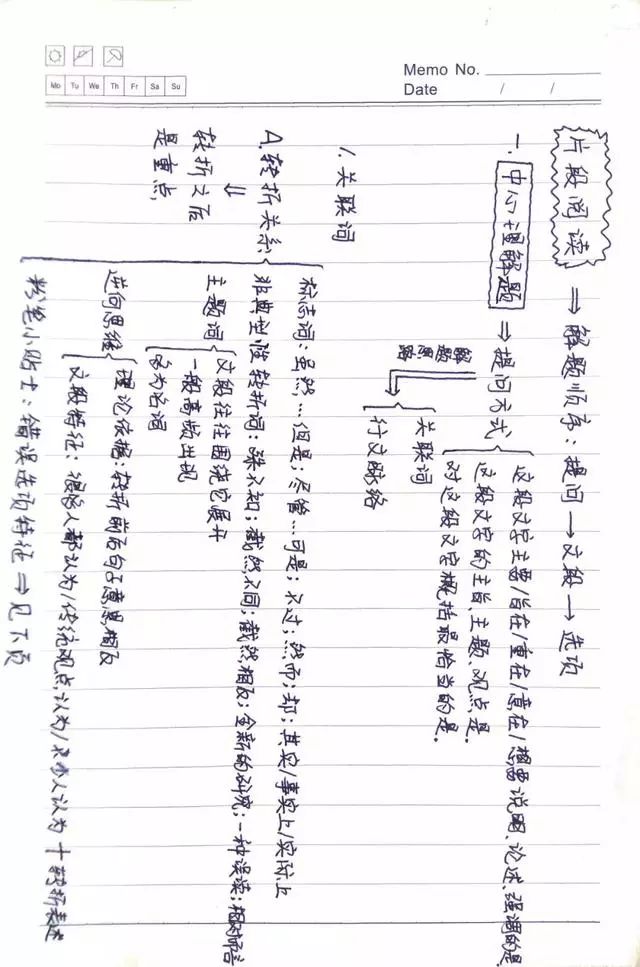 Memo No.
Date / /
Mo Tu We Th Fr Sa Su
片段阅读 ⇒ 解题顺序：提问 → 文段 → 选项
一. 中心理解题 ⇒ 提问方式
这段文字主要/旨在/重在/意在/想要说明、论述、强调的是
这段文字的主旨、主题、观点是.
对这段文字概括最恰当的是.
解题思路
关联词
行文脉络
1. 关联词
A. 转折关系
⇓
转折之后
是重点,
标志词：虽然…但是；尽管…可是；不过；然而；却；其实/事实上/实际上
非典型性转折词：殊不知；截然不同；截然相反；全新的研究；一种误读；相对而言
主题词
文段往往围绕它展开
一般高频出现
多为名词
逆向思维
理论依据：转折前后句子意思相反
文段特征：很多人都认为/传统观点认为/不少人认为 + 转折表述
粉笔小贴士：错误选项特征 ⇒ 见下页